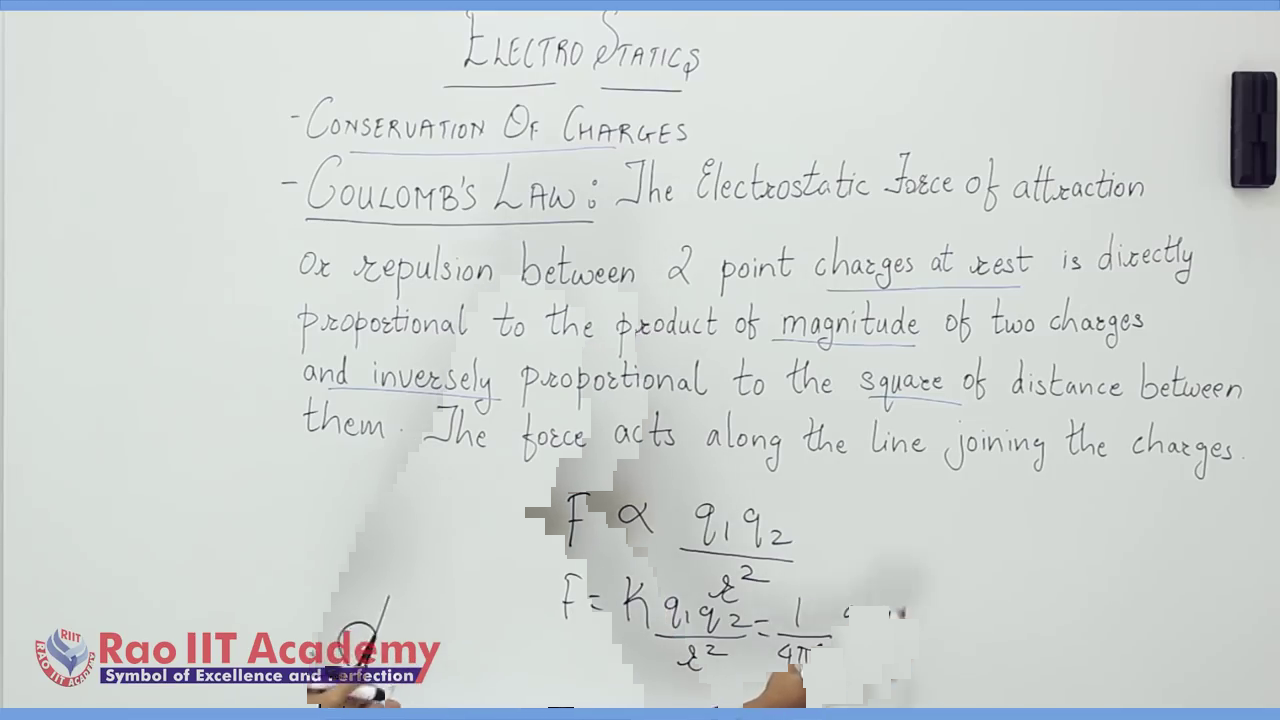 ELECTRO STATICS
- CONSERVATION OF CHARGES
- COULOMB'S LAW: The Electrostatic Force of attraction
or repulsion between 2 point charges at rest is directly
proportional to the product of magnitude of two charges
and inversely proportional to the square of distance between
them. The force acts along the line joining the charges.
F ∝ q₁q₂/r²
F = K q₁q₂/r² = 1/4π
RIIT
RAO IIT ACADEMY
Rao IIT Academy
Symbol of Excellence and Perfection